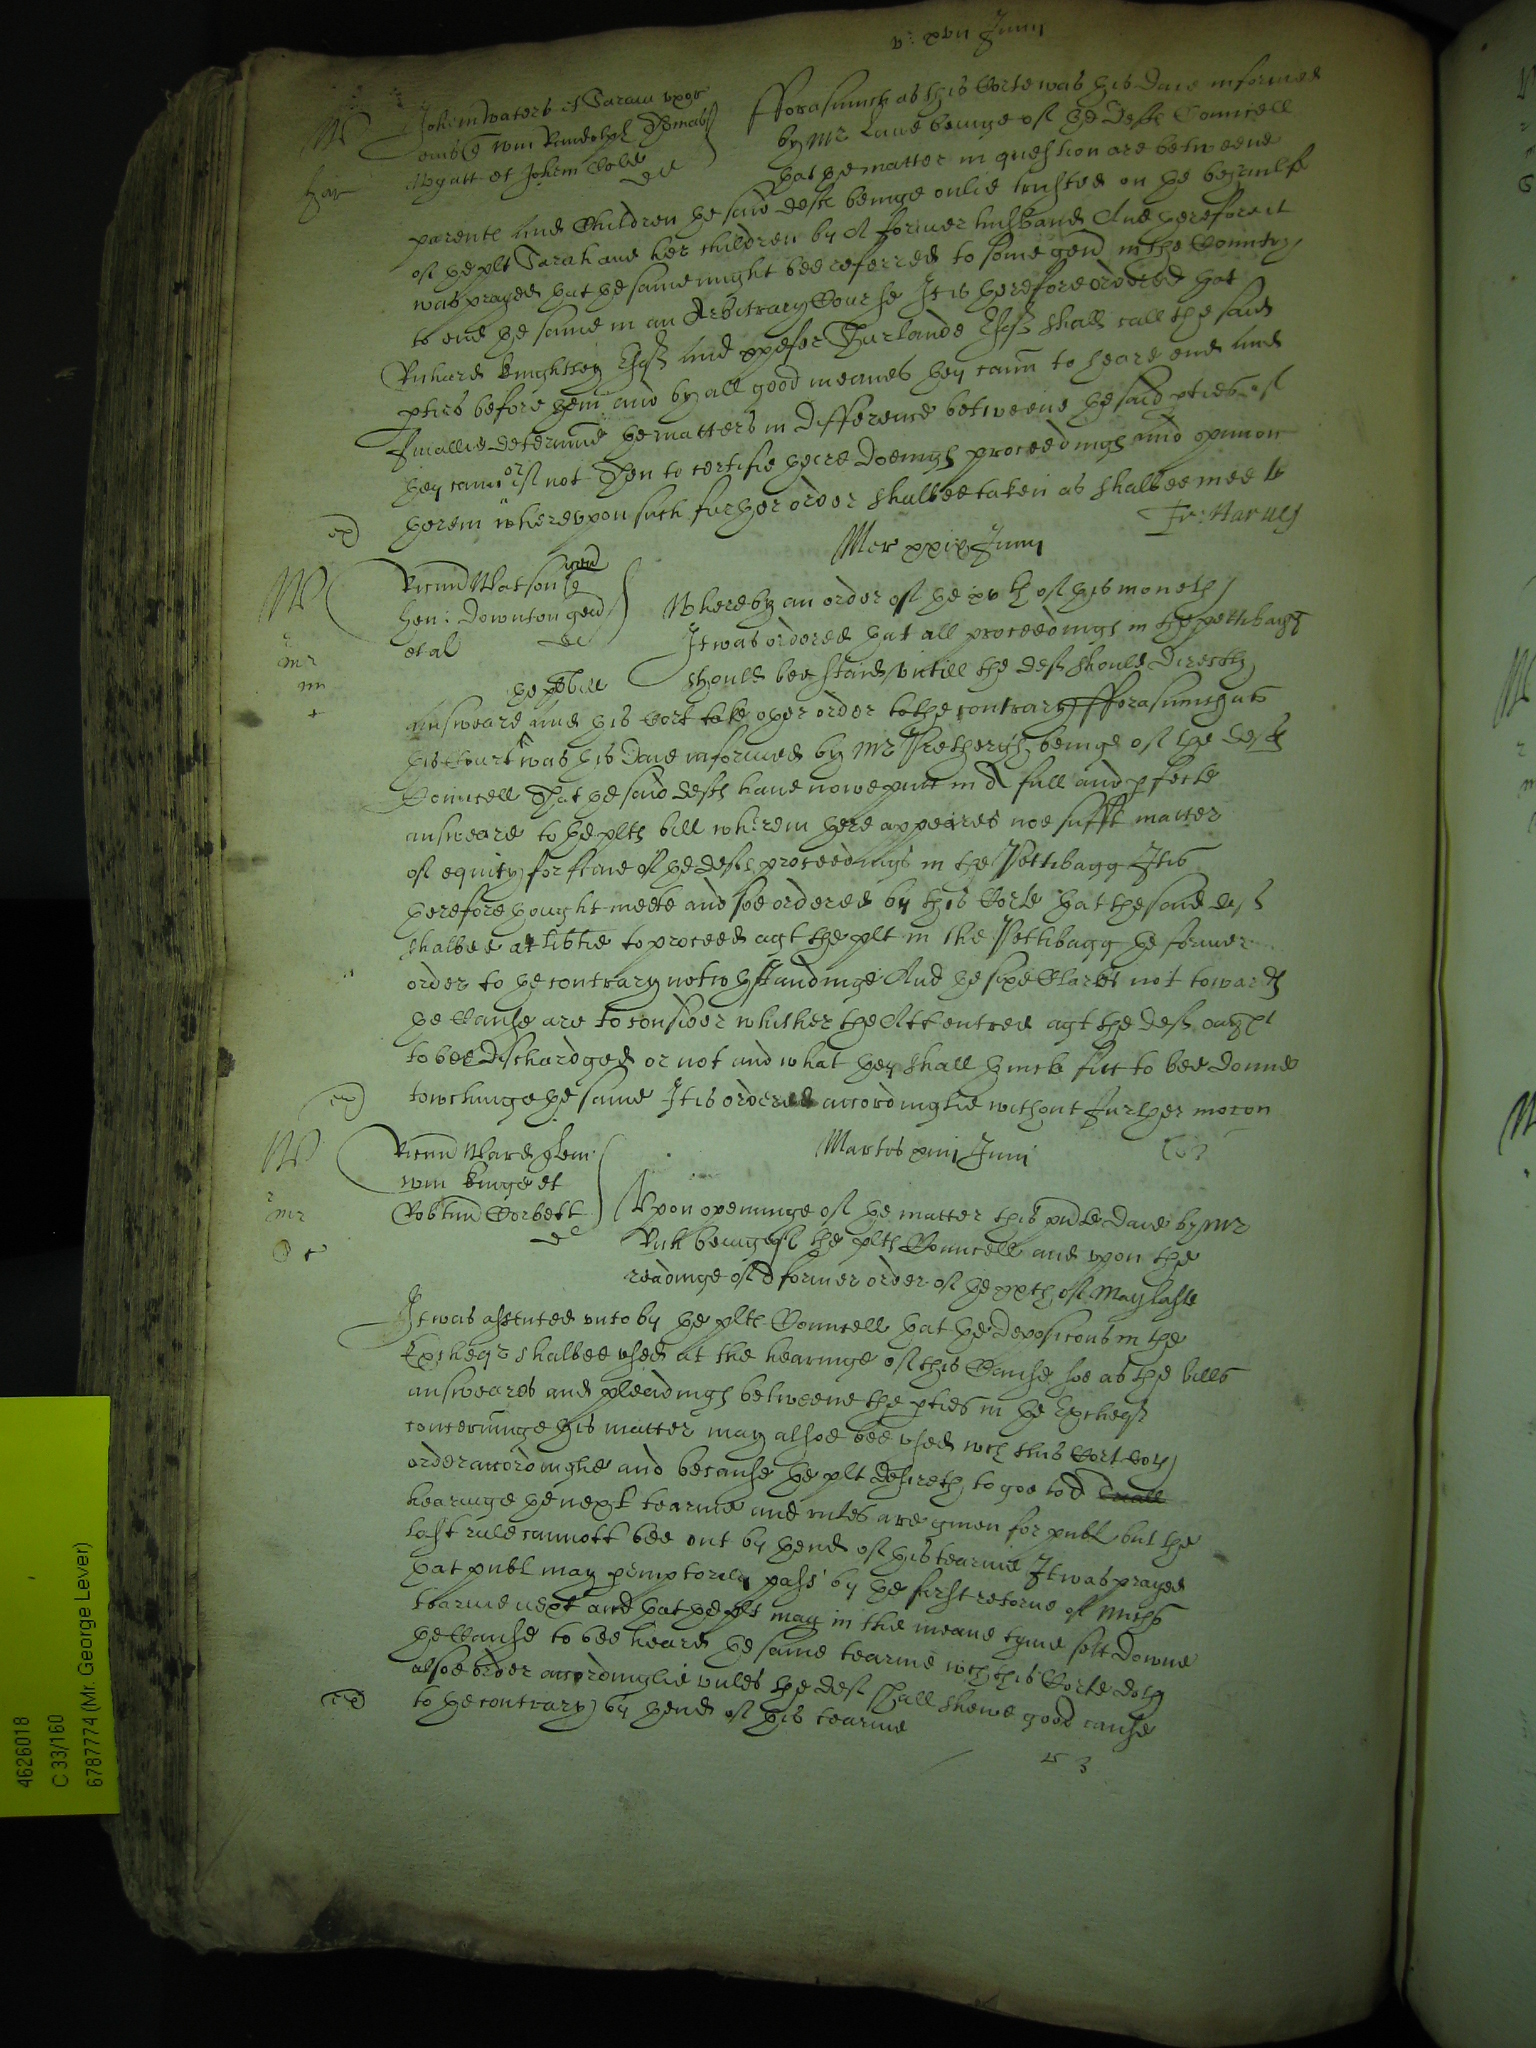 v: xvii Junij
W
har
Johem Waters et Saram uxor
quer Wm Randolph Thomas
Wyatt et Johem Cole
def
fforasmuch as this Corte was this daie informed
by Mr Lane beinge of the defts Councell
that the matter in question are betweene
parente and Children the said defts beinge onlie trusted on the behaulfe
of the plt Sarah and her children by A former husband And therefore it
was prayed that the same might bee referred to some gent in the Country
to end the same in an Arbitrary Course It is therefore ordered that
Richard Knightley Esqr and Xpofer Thurlande Esqr shall call the said
pties before them and by all good meanes they cann to heare end and
finallie determine the matters in difference betweene the said pties if
they cann or if not Then to certifie theire doeings proceedings and opinion
therein whereupon such further order shalbee taken as shalbee meete
ex
Fr: Harvey
Mer xxix Junij
W
mr
nn
+
Ricum Watson gent
quer
Hen: Downton gent
et al def
Whereby an order of the xvth of this moneth
It was ordered that all proceedings in the pettibagg
should bee staied untill the deft should directly
the plts bill
answeare and this Cort take other order to the contrary fforasmuch as
this Court was this daie informed by Mr Pretherghe beinge of the defts
Councell That the said defts have nowe putt in A full and pfecte
answeare to the plts bill wherein there appeares noe sufft matter
of equity for staie of the defts proceedings in the Pettibagg It is
therefore thought meete and soe ordered by this Corte that the said deft
shalbee at libtie to proceed agt the plt in the Pettibagg the former
order to the contrary notwthstandinge And the sixe Clarkes not towards
the Cause are to consider whither the Att entred agt the deft ought
to bee dischardged or not and what they shall thincke fitt to bee donne
towchinge the same It is ordered accordinglie without further mocon
ex
Martis xiiij Junij
W
mr
Ricum Ward quer
Wm Kinge et
Robtum Corbett
def
Upon openinge of the matter this pnte daie by Mr
Rich beinge of the plts Councell and upon the
readinge of A former order of the xxth of May laste
It was assented unto by the plts Councell that the deposicons in the
Exchequer shalbee used at the hearinge of this Cause soe as the bills
answeares and pleadings betweene the pties in the Exchequer
concerninge this matter may alsoe bee used wch this Cort doth
order accordinglie and because the plt desireth to goe to A
hearinge the next tearme and rules are given for publ but the
last rule cannott bee out by thend of this tearme It was prayed
that publ may pemptorily passe by the first retorne of Michs
tearme next and that the plt may in the meane tyme sett downe
the Cause to bee heard the same tearme wch this Corte doth
alsoe order accordinglie unles the deft shall shewe good cause
to the contrary by thend of this tearme
ex
4626018
C 33/160
6787774 (Mr. George Lever)